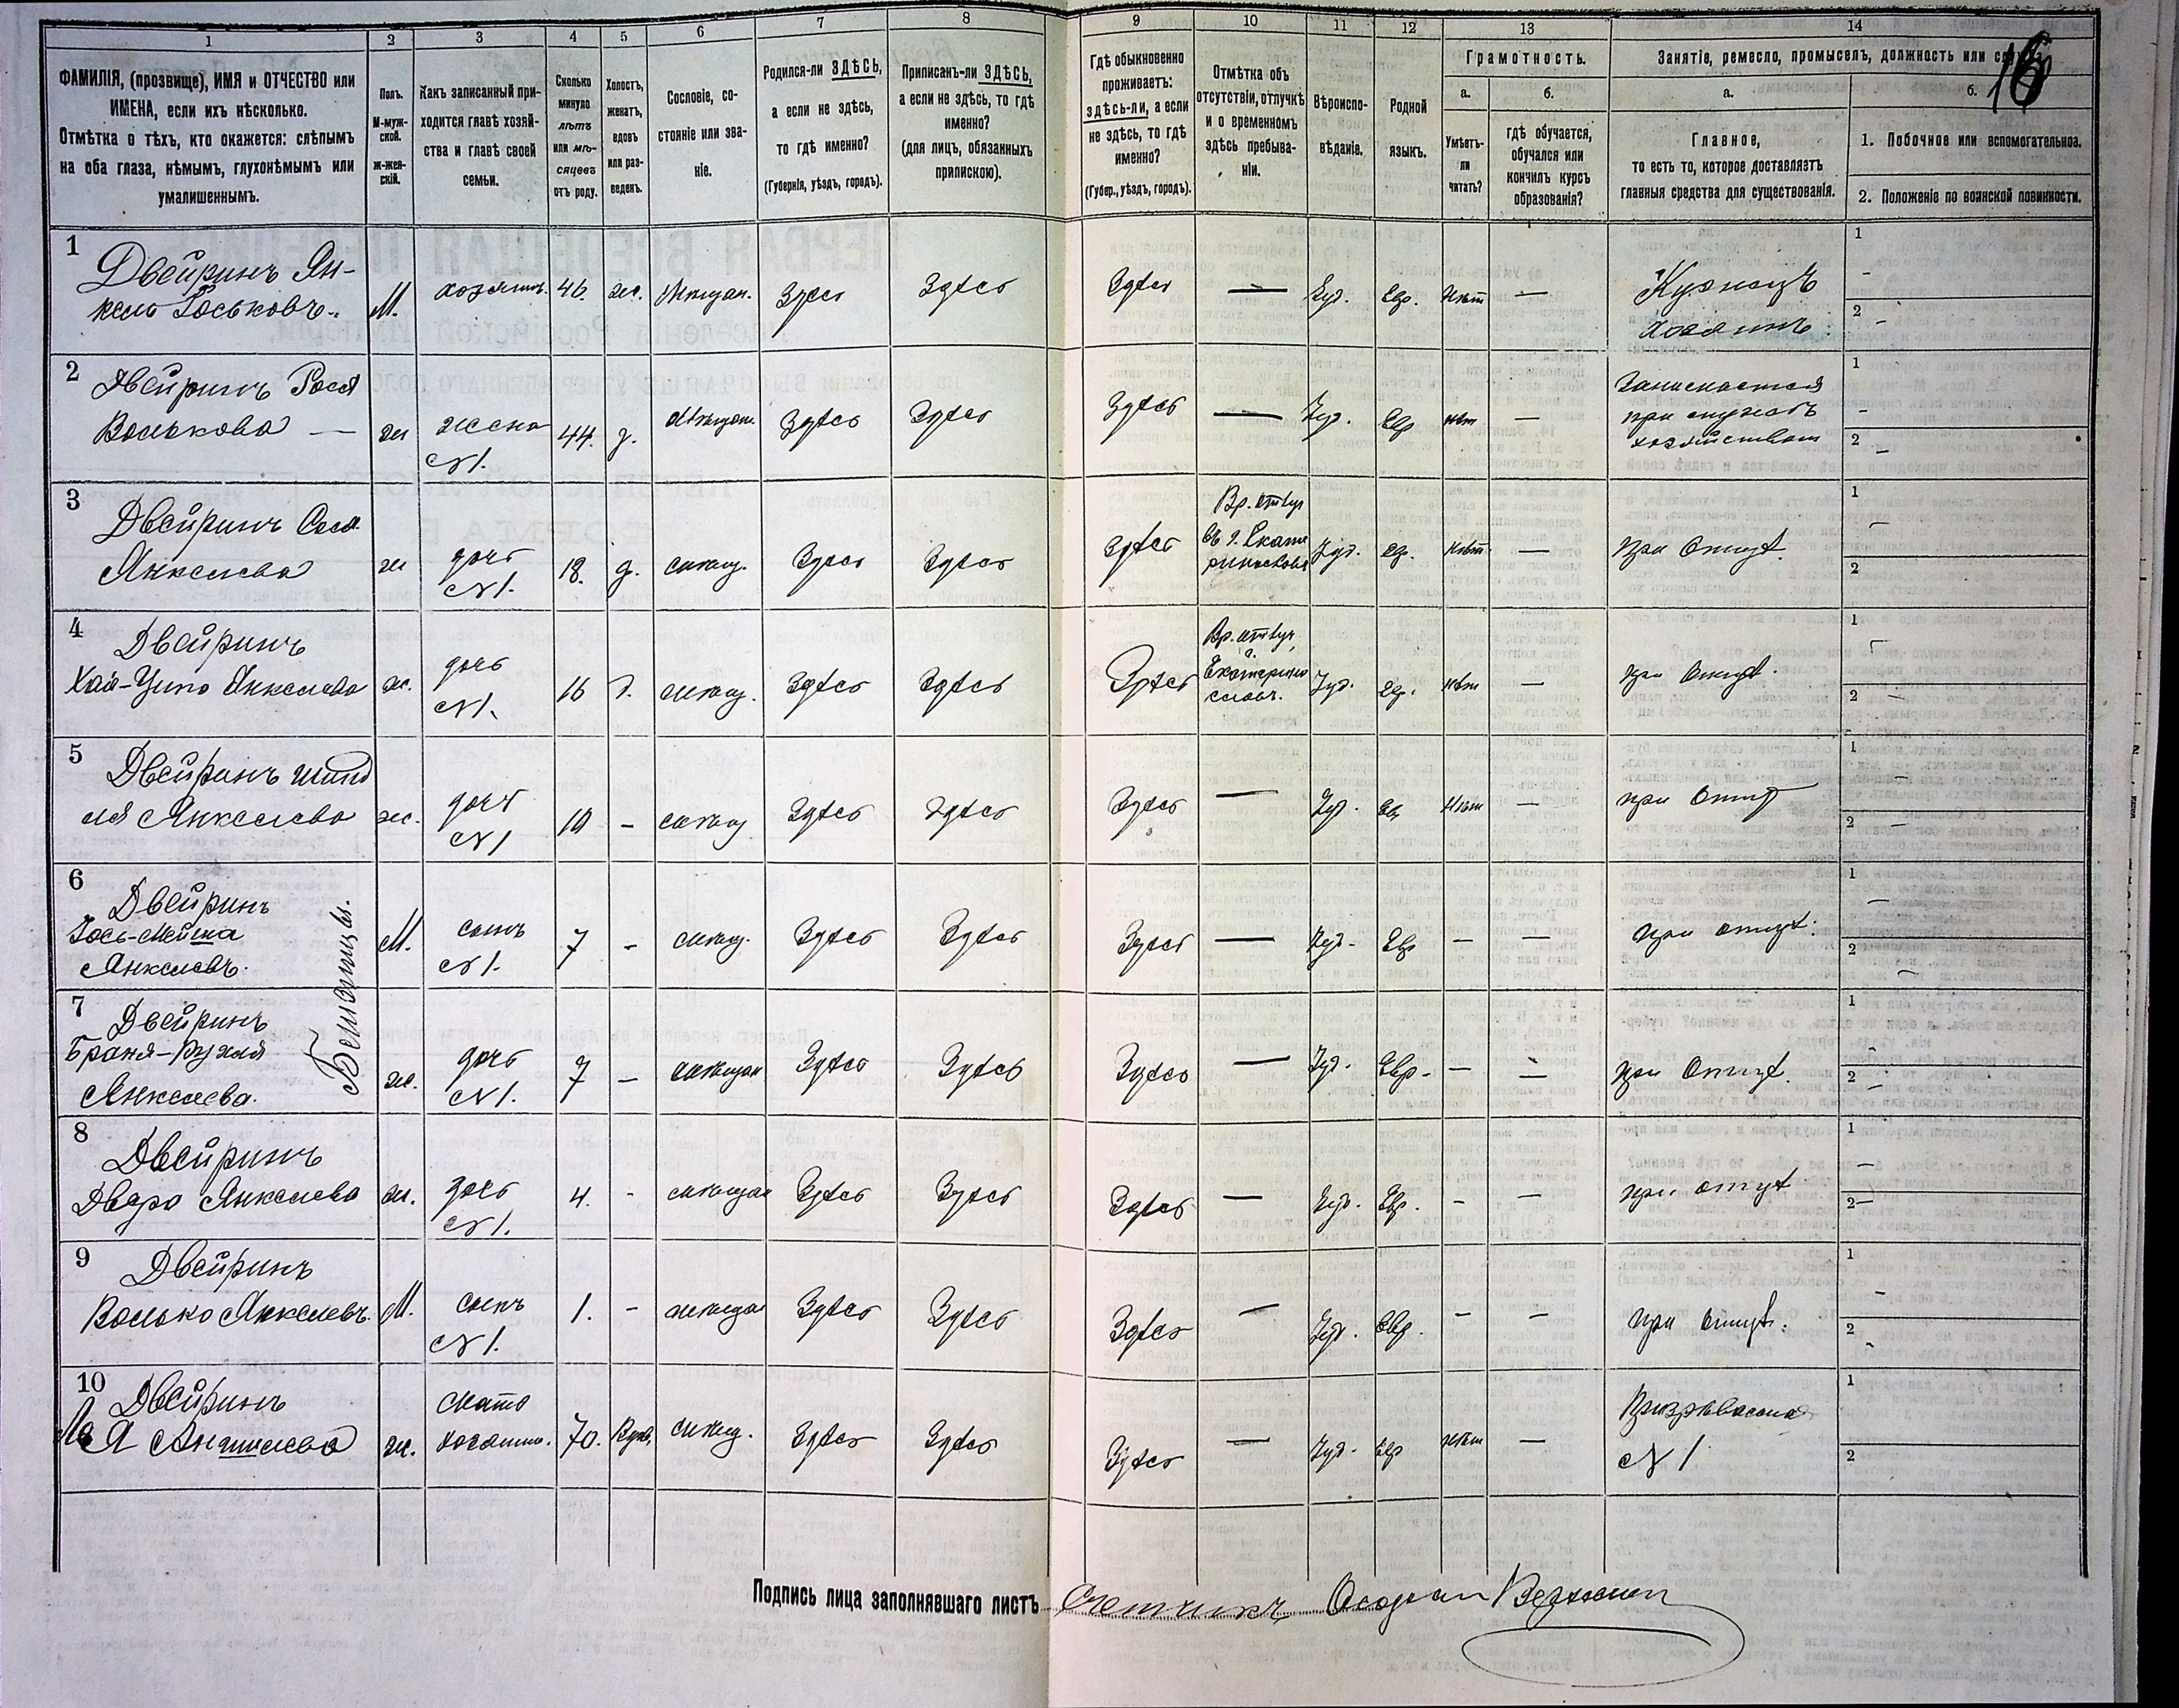 1 2 3 4 5 6 7 8 9 10 11 12 13 14
ФАМИЛІЯ, (прозвище), ИМЯ и ОТЧЕСТВО или
ИМЕНА, если ихъ нѣсколько.
Отмѣтка о тѣхъ, кто окажется: слѣпымъ
на оба глаза, нѣмымъ, глухонѣмымъ или
умалишеннымъ.
Полъ.
М-муж-
ской.
ж-жен-
скій.
Какъ записанный при-
ходится главѣ хозяй-
ства и главѣ своей
семьи.
Сколько
минуло
лѣтъ
или мѣ-
сяцевъ
отъ роду.
Холостъ,
женатъ,
вдовъ
или раз-
веденъ.
Сословіе, со-
стояніе или зва-
ніе.
Родился-ли ЗДѢСЬ,
а если не здѣсь,
то гдѣ именно?
(Губернія, уѣздъ, городъ).
Приписанъ-ли ЗДѢСЬ,
а если не здѣсь, то гдѣ
именно?
(для лицъ, обязанныхъ
припискою).
Гдѣ обыкновенно
проживаетъ:
здѣсь-ли, а если
не здѣсь, то гдѣ
именно?
(Губер., уѣздъ, городъ).
Отмѣтка объ
отсутствіи, отлучкѣ
и о временномъ
здѣсь пребыва-
ніи.
Вѣроиспо-
вѣданіе.
Родной
языкъ.
Грамотность.
а.
Умѣетъ-
ли
читать?
б.
гдѣ обучается,
обучался или
кончилъ курсъ
образованія?
Занятіе, ремесло, промыселъ, должность или
а.
Главное,
то есть то, которое доставляетъ
главныя средства для существованія.
б.
1. Побочное или вспомогательное.
2. Положеніе по воинской повинности.
1 Двейринъ Ян-
кель Іоськовъ. М. хозяинъ. 46. ж. Мѣщан. Здѣсь Здѣсь Здѣсь — Іуд. Евр. Нѣт — Кузнецъ
хозяинъ 1 - 2 -
2 Двейринъ Рося
Волькова — ж жена
N 1. 44. з. Мѣщан. Здѣсь Здѣсь Здѣсь — Іуд. Евр нѣт —
при
1 - 2 -
3 Двейринъ
Янкелева ж дочь
N 1. 18. д. мѣщ. Здѣсь Здѣсь Здѣсь Вр.
въ г. Екате
Іуд. ев. нѣт. — при отцѣ. 1 - 2
4 Двейринъ
Янкелева ж. дочь
N 1. 16 д. мѣщ. Здѣсь Здѣсь Здѣсь Вр.
г.
Екатерино
славъ. Іуд. ев. нѣт — при отцѣ. 1 2 -
5 Двейринъ
Янкелева ж. дочь
N 1 10 - мѣщ Здѣсь Здѣсь Здѣсь — Іуд. Ев Нѣт — при отцѣ 1 - 2 -
6 Двейринъ
Іось-Мейша
Янкелевъ. М. сынъ
N 1. 7 - мѣщ. Здѣсь Здѣсь Здѣсь — Іуд. Евр — — при отцѣ. 1 - 2 -
Близнецы.
7 Двейринъ
Браня-Рухля
Янкелева. ж. дочь
N 1. 7 — мѣщан Здѣсь Здѣсь Здѣсь — Іуд. Евр. — — при отцѣ. 1 - 2 -
8 Двейринъ
Двэра Янкелева ж. дочь
N 1. 4. - мѣщан Здѣсь Здѣсь Здѣсь — Іуд. Евр. - — при отцѣ 1 - 2 -
9 Двейринъ
Волько Янкелевъ. М. сынъ
N 1. 1. - мѣщан Здѣсь Здѣсь Здѣсь — Іуд. Евр. - — при отцѣ. 1 - 2 -
10 Двейринъ
Аншелева ж. мать
хозяина. 70. Вдов. мѣщ. Здѣсь Здѣсь Здѣсь — Іуд. Евр нѣт —
N 1 1 2
Подпись лица заполнявшаго листъ Счетчикъ